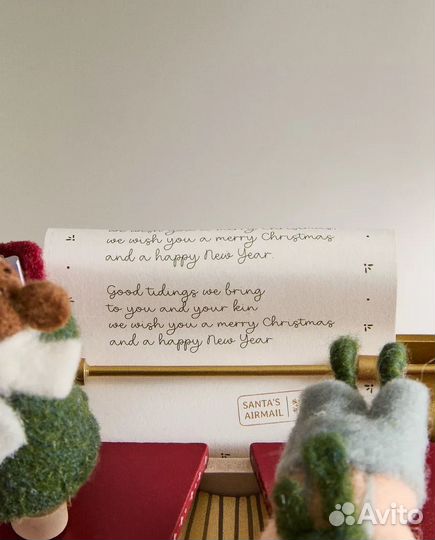 we wish you a merry Christmas
we wish you a merry Christmas
and a happy New Year.
Good tidings we bring
to you and your kin
we wish you a merry Christmas
and a happy New Year
SANTA'S
AIRMAIL
Avito